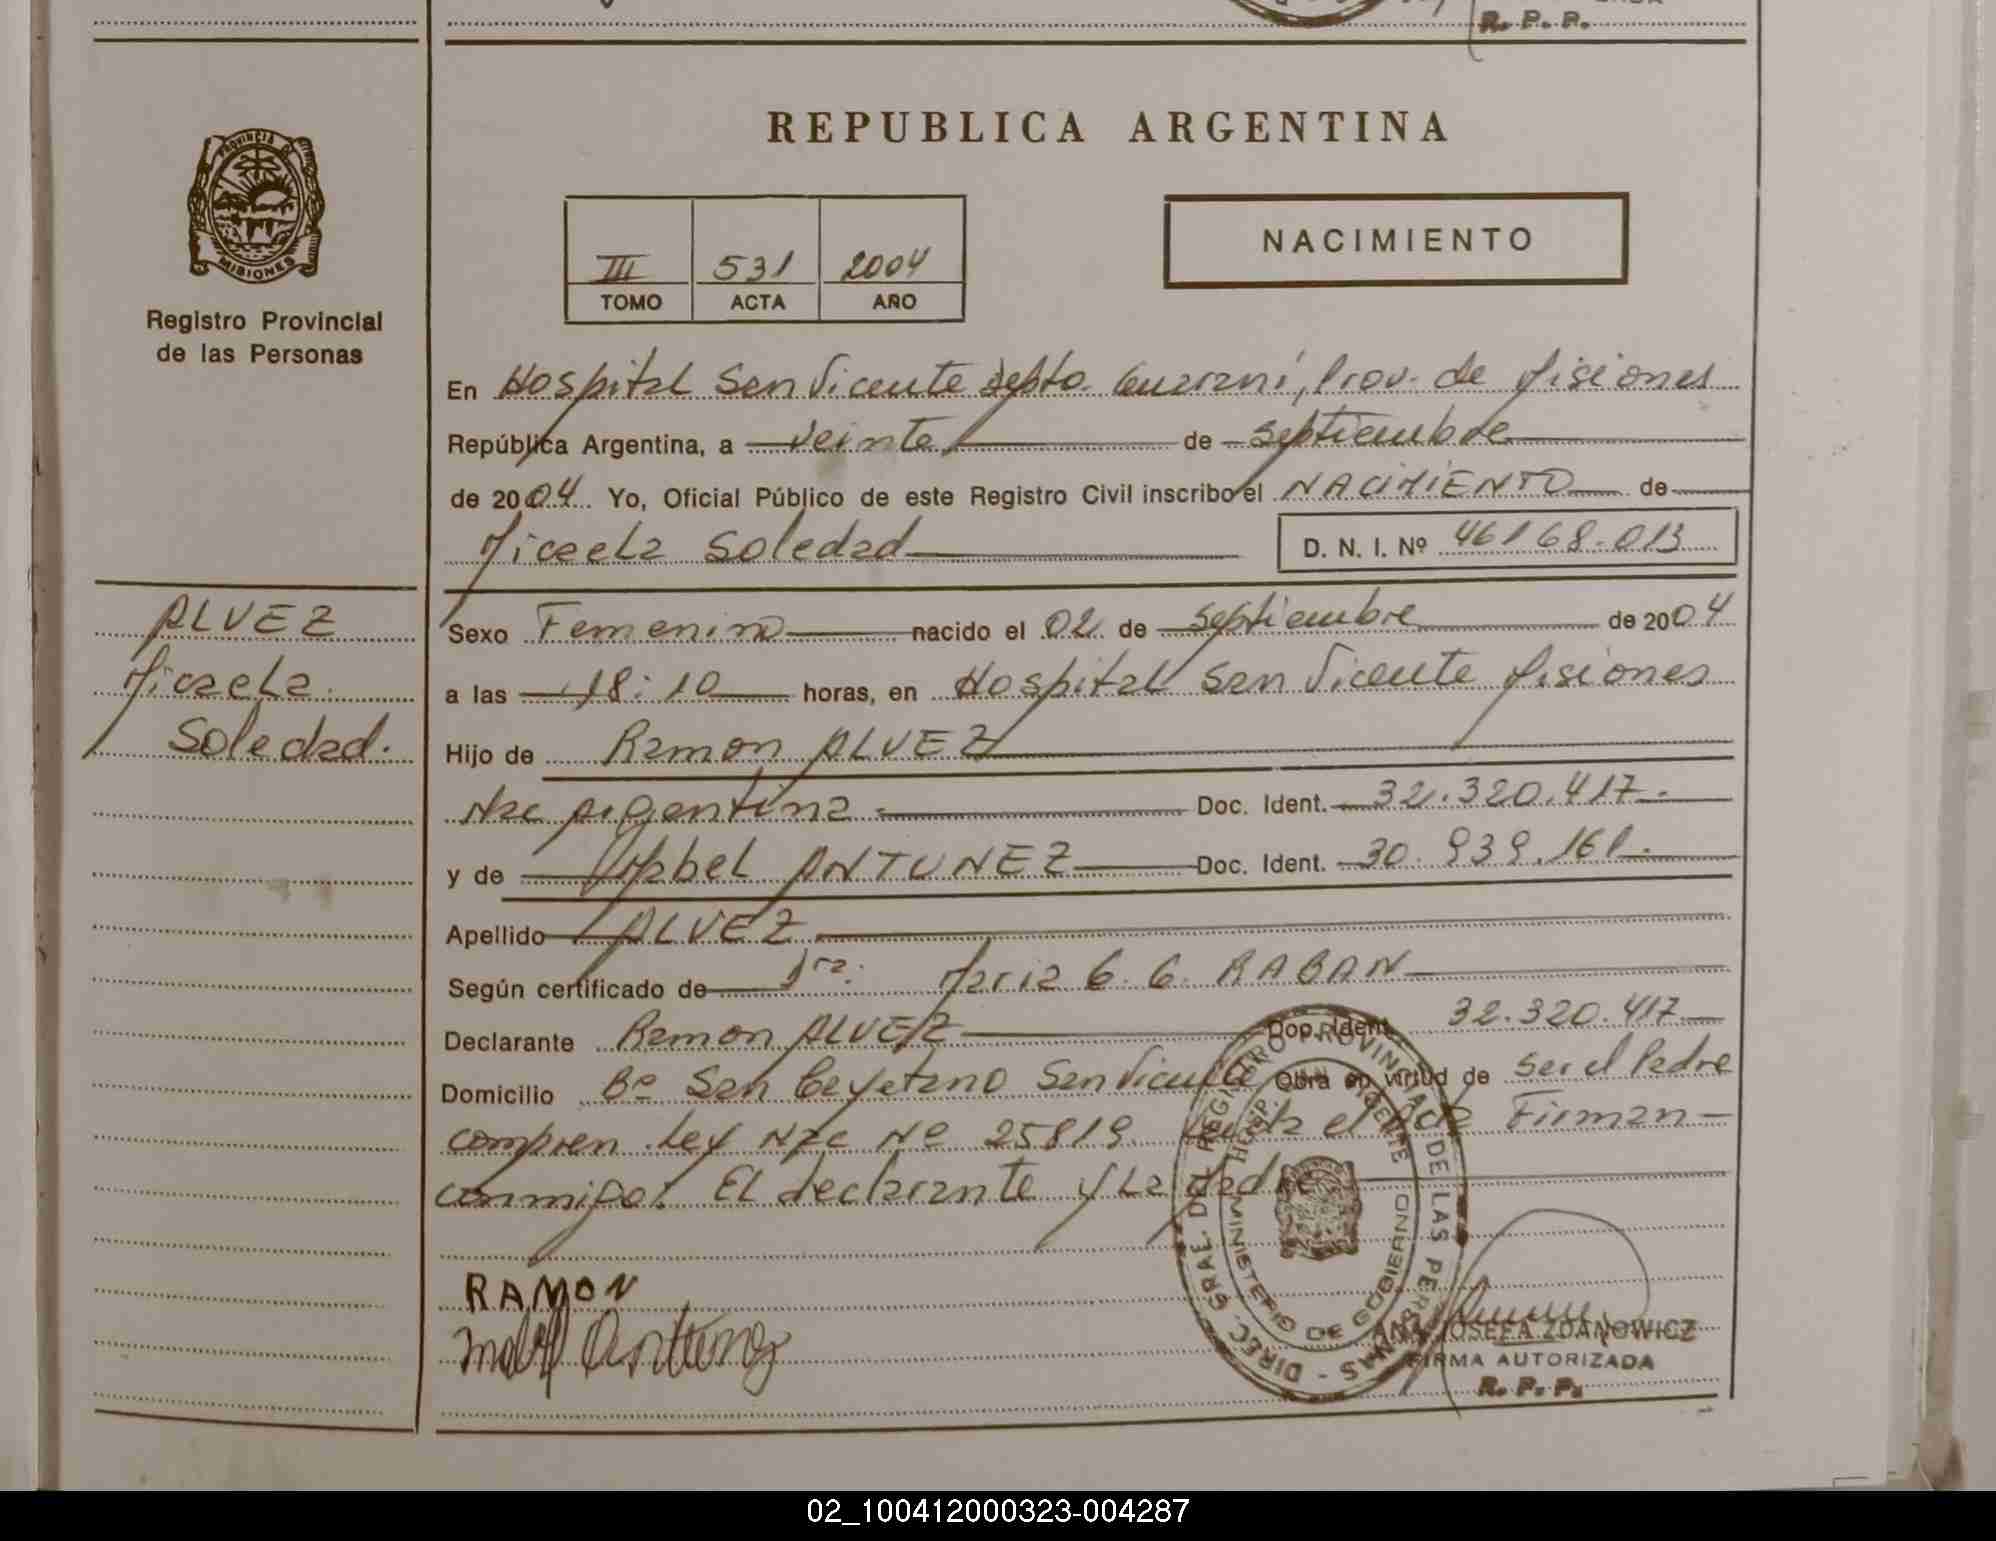 R. P. P.
PROVINCIA DE
MISIONES
Registro Provincial
de las Personas
REPUBLICA ARGENTINA
III 531 2004
TOMO ACTA AÑO
NACIMIENTO
En Hospital San Vicente Depto. Guarani, Prov. de Misiones
República Argentina, a veinte de septiembre
de 2004 Yo, Oficial Público de este Registro Civil inscribo el NACIMIENTO de
Micaela Soledad D. N. I. Nº 46168.013
ALVEZ
Micaela
Soledad.
Sexo Femenino nacido el 02 de septiembre de 2004
a las 18:10 horas, en Hospital San Vicente Misiones
Hijo de Ramon ALVEZ
Nac Argentina Doc. Ident. 32.320.417.
y de Mabel ANTUNEZ Doc. Ident. 30.939.161.
Apellido ALVEZ
Según certificado de Dra. Maria G. G. RABAN
Declarante Ramon ALVEZ Doc. Ident. 32.320.417
Domicilio Bº San Cayetano San Vicente Obra en virtud de ser el Padre
compren. Ley Nac Nº 25819. el acta Firman
conmigo: El declarante y La Madre
RAMON
Mabel Antunez
DIREC. GRAL. DEL REGISTRO PROVINCIAL DE LAS PERSONAS -
HOSP. SAN VICENTE
MINISTERIO DE GOBIERNO
ANA JOSEFA ZDANOWICZ
FIRMA AUTORIZADA
R. P. P.
02_100412000323-004287